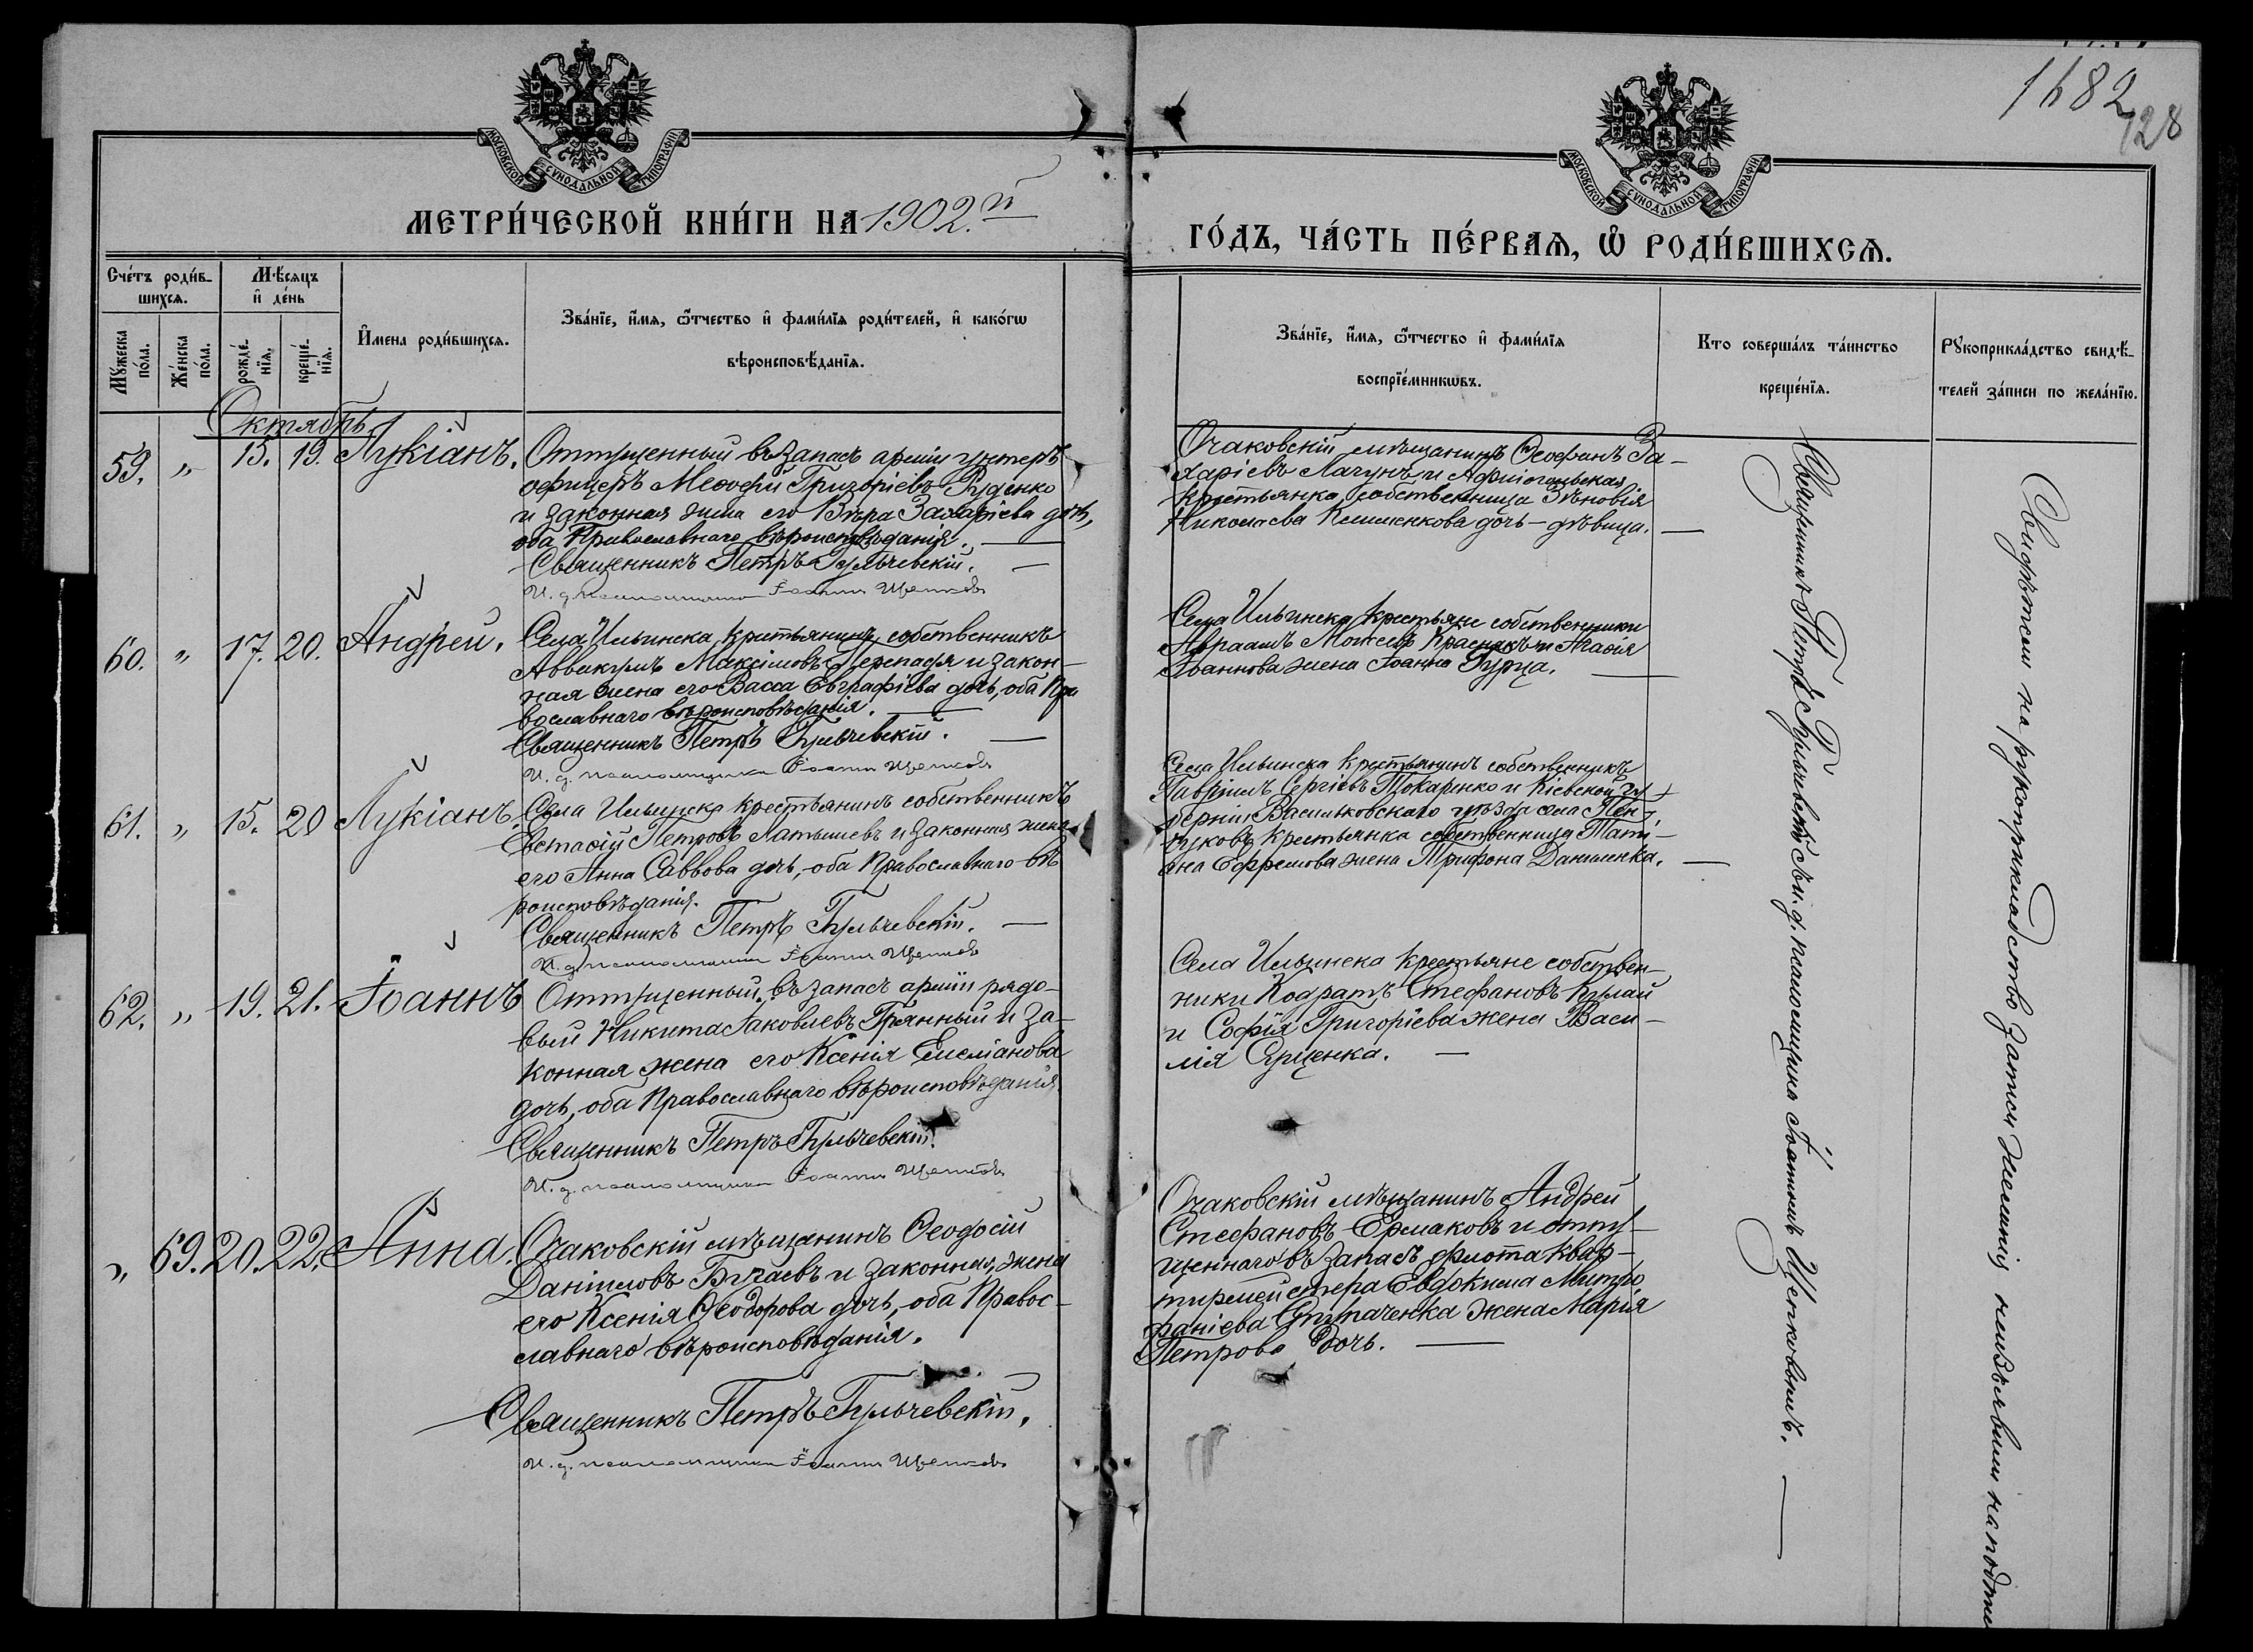 1682
128
МОСКОВСКОЙ СѴНОДАЛЬНОЙ ТИПОГРАФІИ
МОСКОВСКОЙ СѴНОДАЛЬНОЙ ТИПОГРАФІИ
МЕТРИ́ЧЕСКОЙ КНИ́ГИ НА 1902.й
ГО́ДЪ, ЧА́СТЬ ПЕ́РВАѦ, Ѽ РОДИ́ВШИХСѦ.
Сче́тъ роди́в-
шихсѧ.
Мѣ́сѧцъ
и҆ де́нь
Му́жеска
по́ла.
Же́нска
по́ла.
рожде́-
нїѧ.
креще́-
нїѧ.
И҆мена роди́вшихсѧ.
Зва́нїе, и҆́мѧ, ѻ҆́тчество и҆ фами́лїѧ роди́телей, и҆ како́гѡ
вѣроисповѣ́данїѧ.
Зва́нїе, и҆́мѧ, ѻ҆́тчество и҆ фами́лїѧ
воспрїе́мникѡвъ.
Кто соверша́лъ та́инство
креще́нїѧ.
Рꙋкоприкла́дство свидѣ́-
телей за́писи по жела́нїю.
Октябрь
59. „ 15. 19. Лукіанъ.
Отпущенный въ запасъ арміи унтеръ
офицеръ Меѳодій Григоріевъ Руденко
и законная жена его Вѣра Захаріева дочь,
оба Православнаго вѣроисповѣданія.
Священникъ Петръ Гульчевскій.
И. д. псаломщика Іоаннъ Щелковъ
Очаковскій мѣщанинъ Ѳеофанъ За-
харіевъ Лагунъ и
крестьянка собственница Зѣновія
Николаева Клименкова дочь - дѣвица.
60. „ 17. 20. Андрей.
Села Ильинска крестьянинъ собственникъ
Аввакумъ Максимовъ Перепадя и закон-
ная жена его Васса Евграфіева дочь, оба Пра
вославнаго вѣроисповѣданія.
Священникъ Петръ Гульчевскій.
И. д. псаломщика Іоаннъ Щелковъ
Села Ильинска крестьяне собственники
Авраамъ Краснякъ и Агаѳія
Іоаннова жена Іоанна Гурца.
61. „ 15. 20 Лукіанъ
Села Ильинска крестьянинъ собственникъ
Евстаѳій Петровъ Латышевъ и законная жена
его Анна Саввова дочь, оба Православнаго вѣ
роисповѣданія.
Священникъ Петръ Гульчевскій.
И. д. псаломщика Іоаннъ Щелковъ
Села Ильинска крестьянинъ собственникъ
Гавріилъ Сергіевъ Токаренко и Кіевской гу-
берніи Васильковскаго уѣзда села Пен-
чуковъ крестьянка собственница Тати-
яна Ефремова жена Трифона Даниленка.
62. „ 19. 21. Іоаннъ
Отпущенный въ запасъ арміи рядо-
вый Никита Іаковлевъ Грянный и за-
конная жена его Ксенія Емеліанова
дочь, оба Православнаго вѣроисповѣданія
Священникъ Петръ Гульчевскій.
И. д. псаломщика Іоаннъ Щелковъ
Села Ильинска крестьяне собствен-
ники Кодратъ Стефановъ Кулай
и Софія Григоріева жена Васи-
лія Ярценка.
„ 69. 20. 22. Анна.
Очаковскій мѣщанинъ Ѳеодосій
Даніиловъ Бугаевъ и законная жена
его Ксенія Ѳеодорова дочь, оба Правос-
славнаго вѣроисповѣданія.
Священникъ Петръ Гульчевскій.
И. д. псаломщика Іоаннъ Щелковъ
Очаковскій мѣщанинъ Андрей
Стефановъ Ермаковъ и отпу-
щеннаго въ запасъ флота квар-
тирмейстера Евдокима Митро
фаніева жена Марія
Петрова дочь.
Священникъ Петръ Гульчевскій съ и. д. псаломщика Іоанномъ Щелковымъ.
Свидѣтели на рукоприкладство записи желанія не изъявили